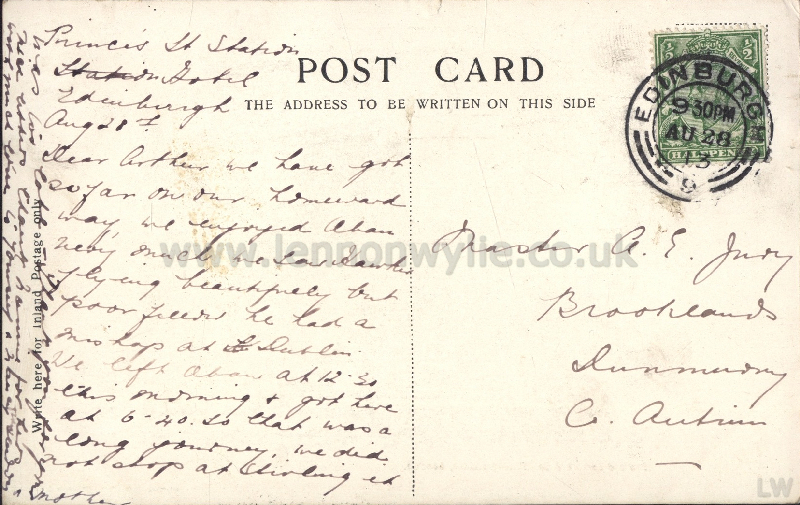 Princes St Station
Station Hotel
Edinburgh
Aug 28th
POST CARD
THE ADDRESS TO BE WRITTEN ON THIS SIDE
EDINBURGH
9 30PM
AU 28
13
9
1/2 1/2
HALFPENNY
Dear Arthur we have got
so far on our homeward
way, we enjoyed Oban
very much we saw Hawker
flying beautifully but
poor fellow he had a
mishap at Dublin.
We left Oban at 12-30
this morning & got here
at 6-40. so that was a
long journey. we did
not stop at Stirling it
was
mother
Write here for Inland Postage only
Master A. E. Judy
Brooklands
Dunmurry
Co. Antrim
www.lennonwylie.co.uk
LW